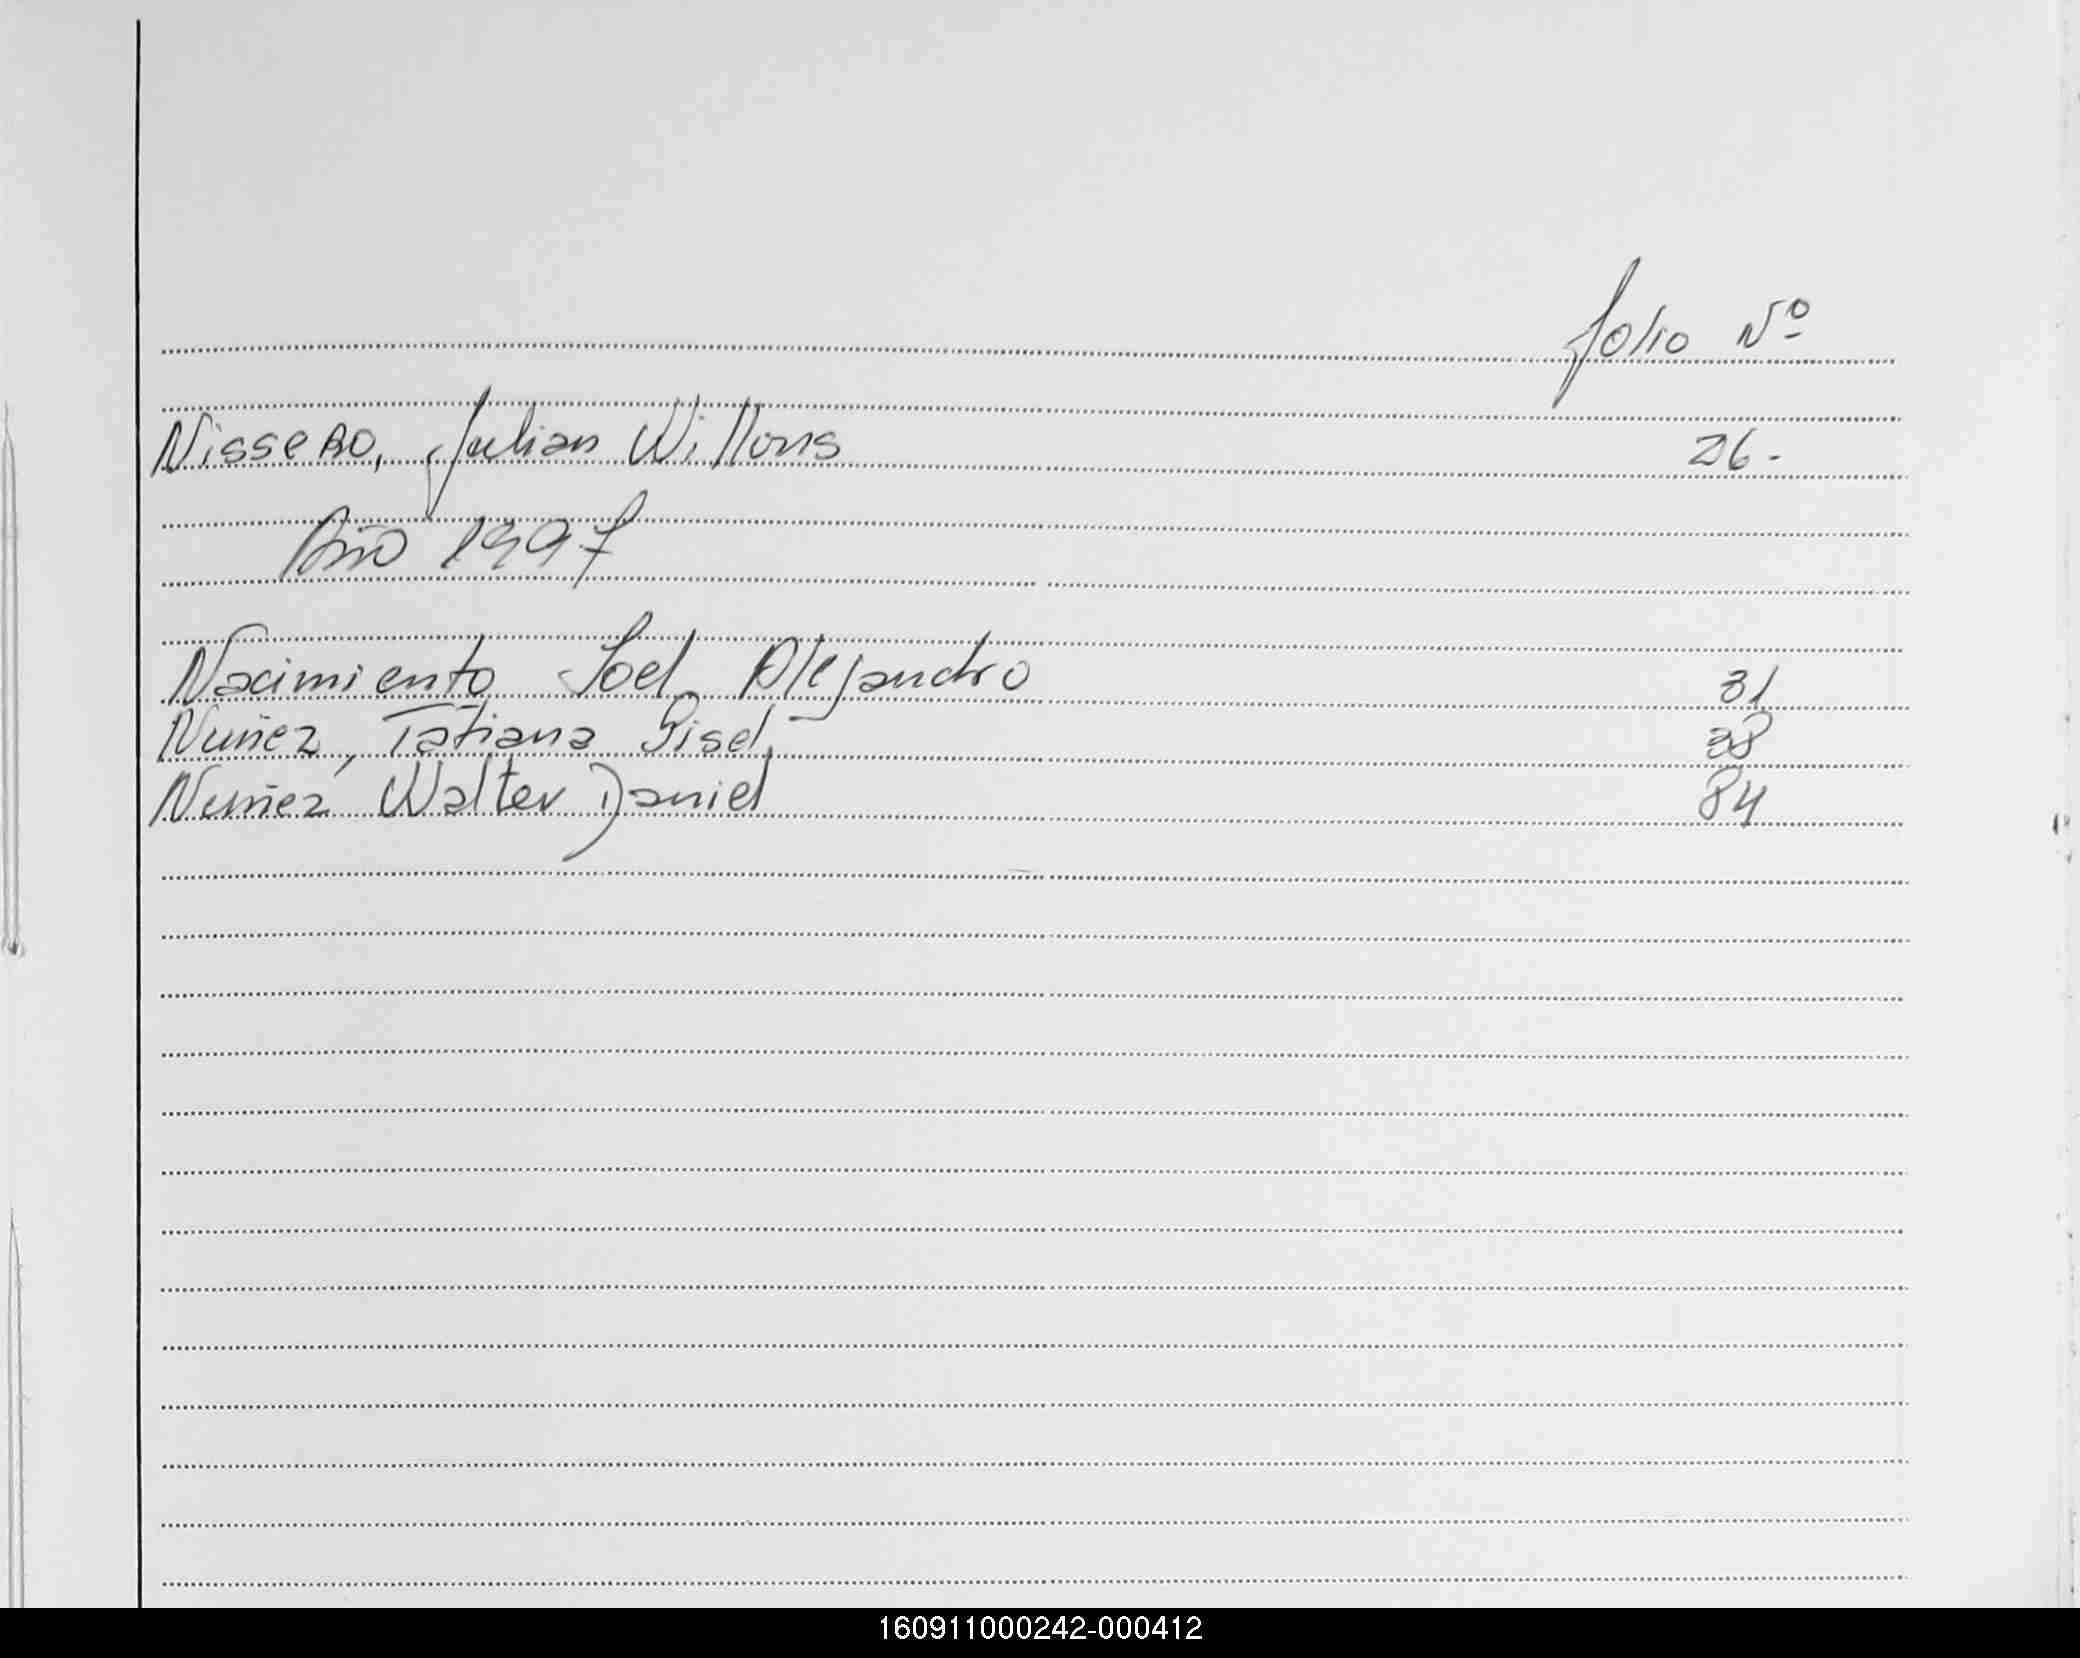 folio Nº
Nissero, Julian Willons 26.-
Año 1997
Nacimiento Joel Alejandro 31
Nuñez, Tatiana Gisel 38
Nuñez Walter Daniel 84
160911000242-000412